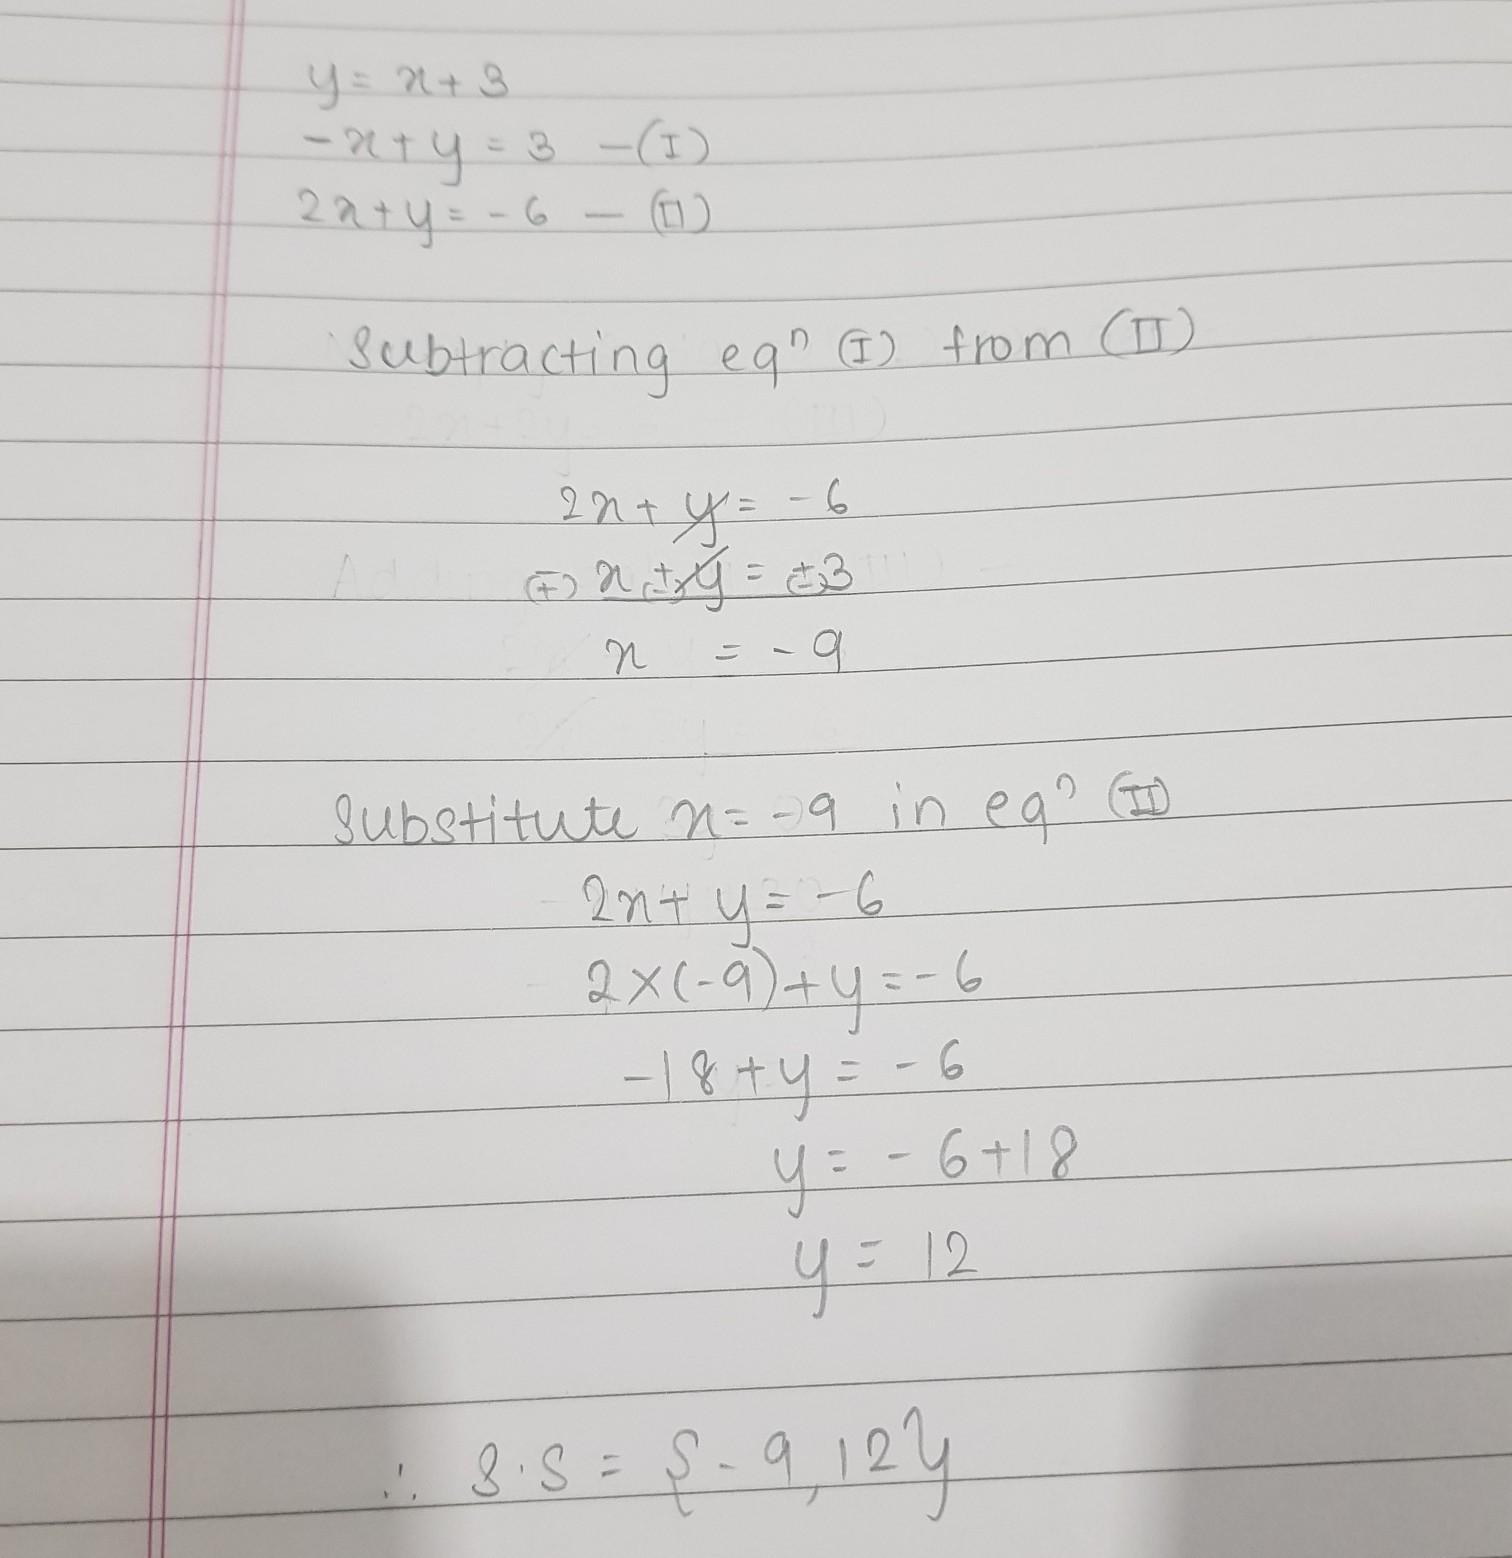 y = x + 3
-x + y = 3 - (I)
2x + y = -6 - (II)
Subtracting eqⁿ (I) from (II)
2x + y = -6
(∓) x (±) y = (±) 3
x = -9
Substitute x = -9 in eqⁿ (II)
2x + y = -6
2 × (-9) + y = -6
-18 + y = -6
y = -6 + 18
y = 12
∴ S.S = {-9, 12}